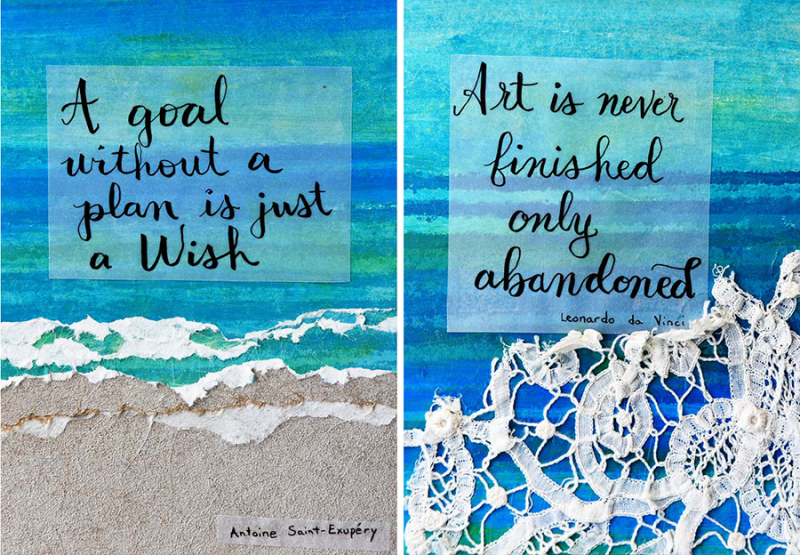 A goal
without a
plan is just
a Wish
Antoine Saint-Exupéry
Art is never
finished
only
abandoned
Leonardo da Vinci